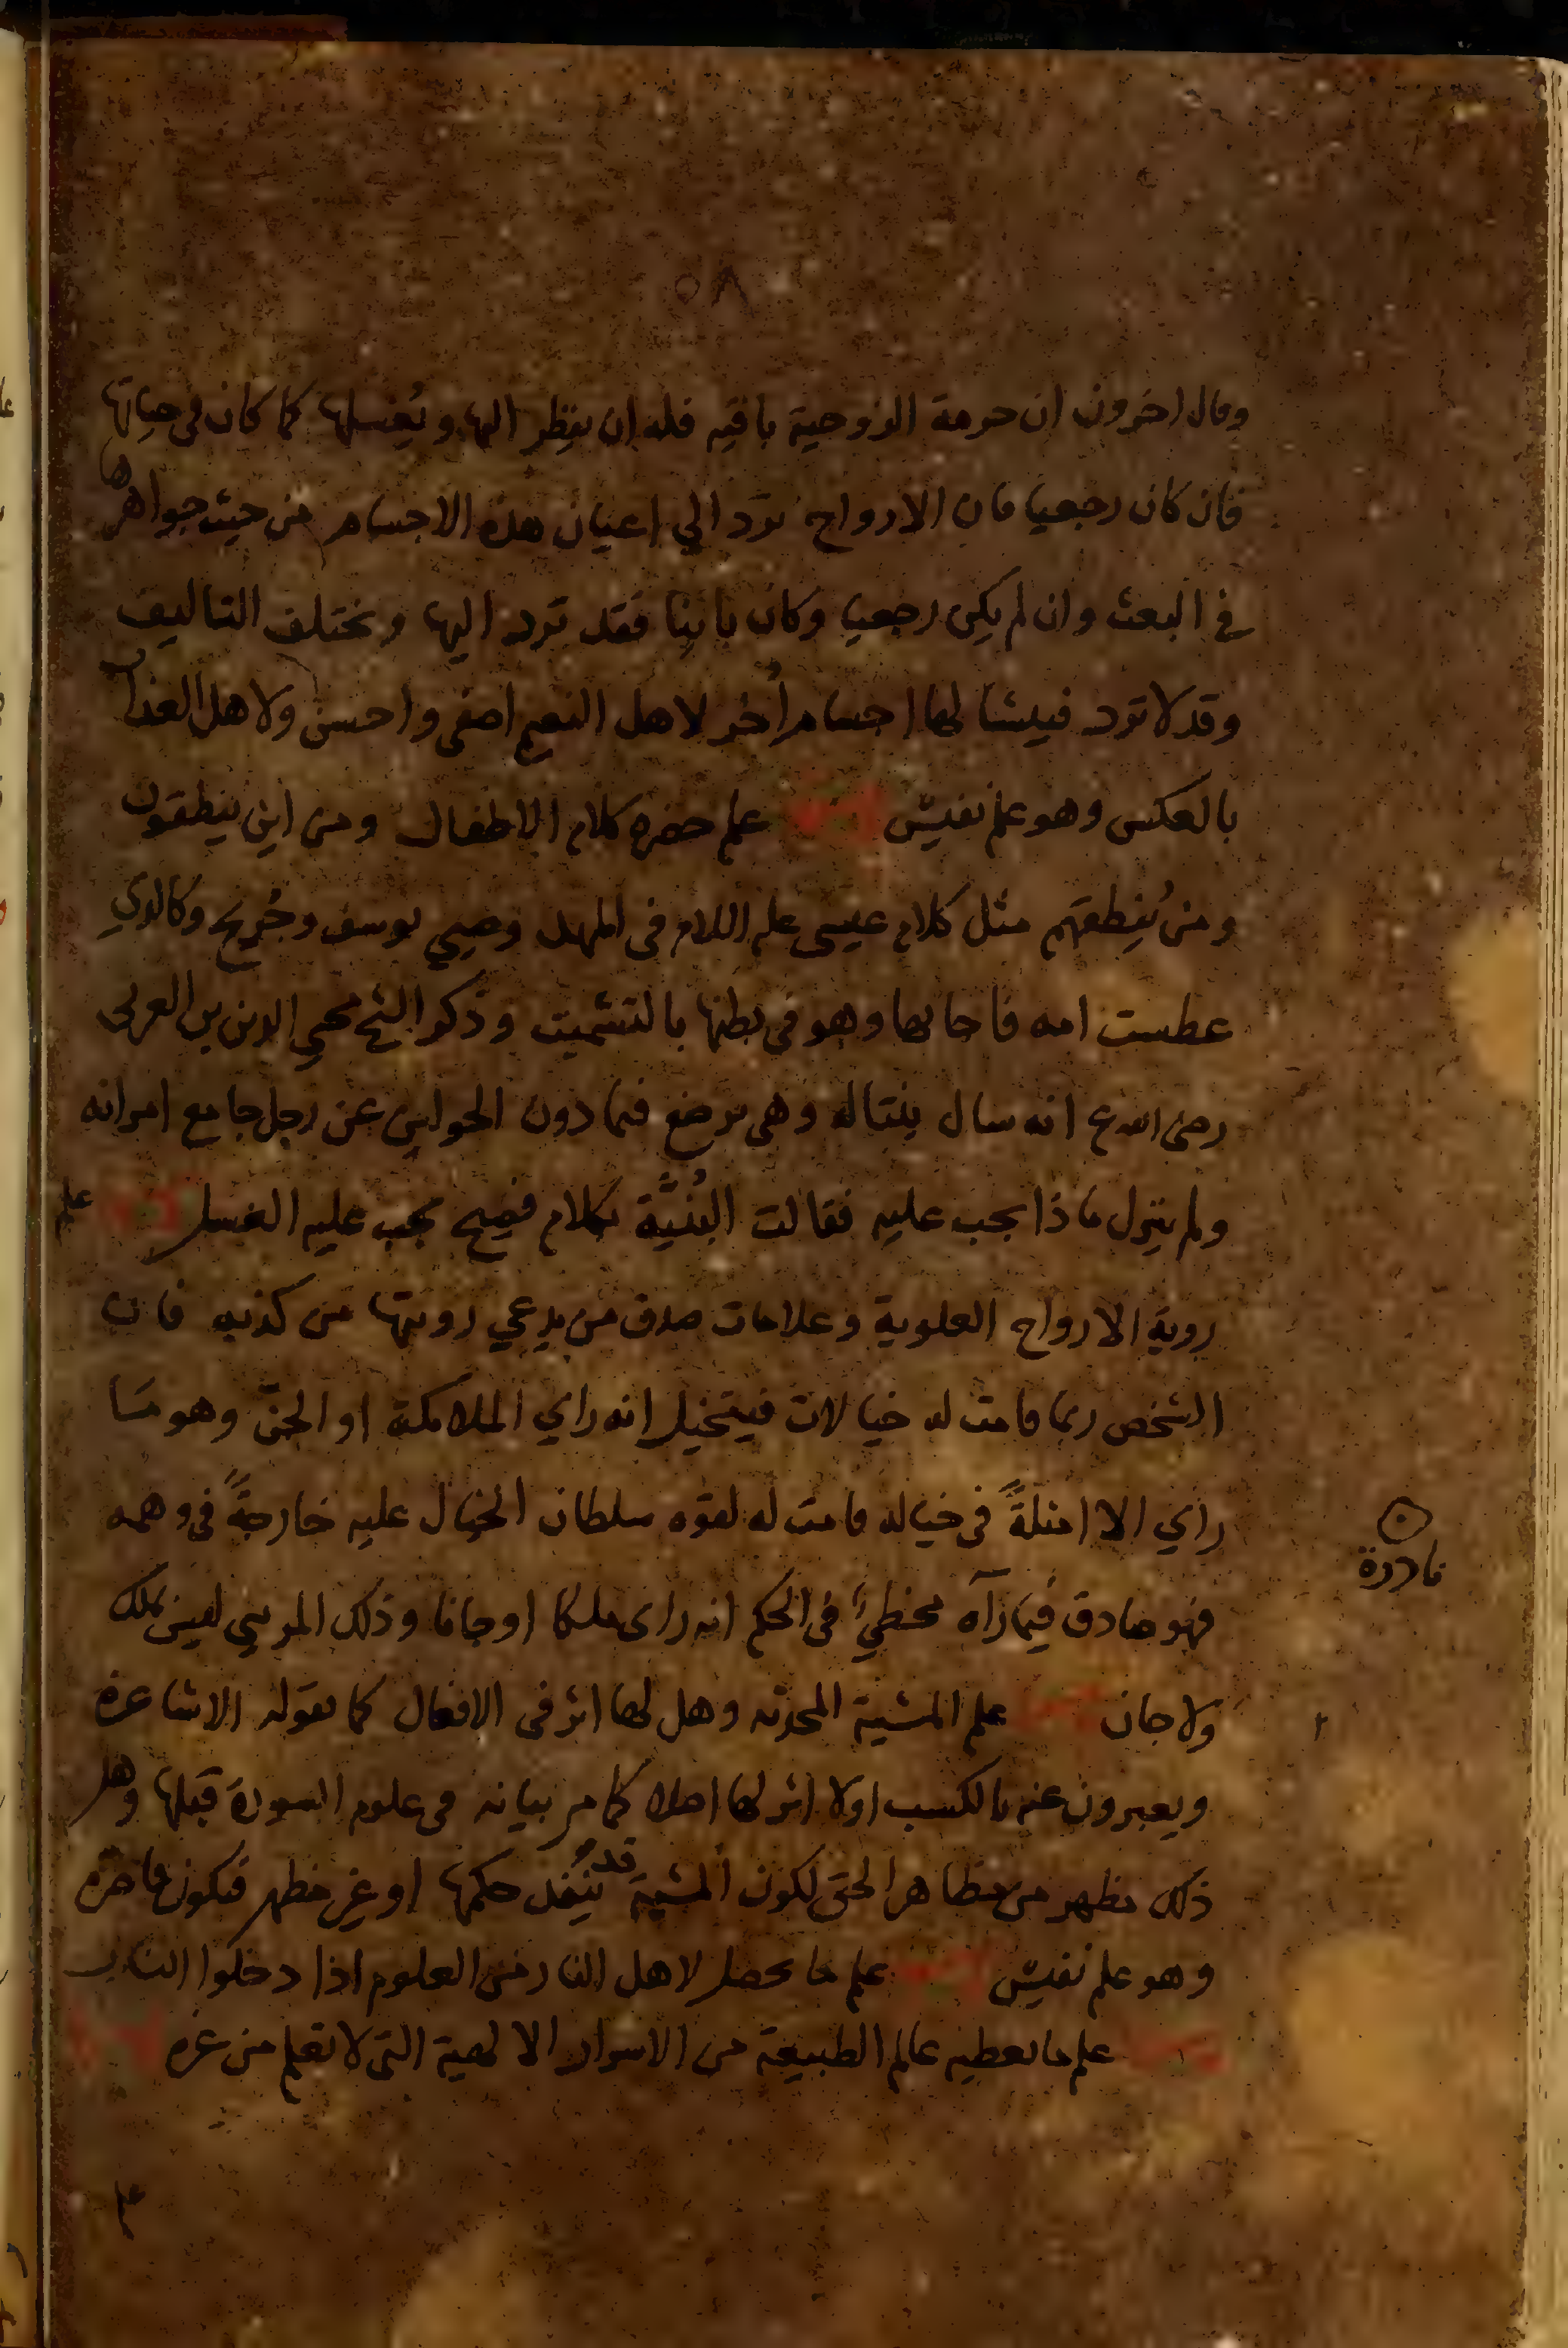 ٥٨
وقال اخرون ان حرمة الزوجية باقيه فله ان ينظر اليها ويُغسلها كما كان في حياتها
فان كان رجعيا فان الارواح ترد الي اعيان هذه الاجسام من حيث جواهرها
في البعث وان لم يكن رجعيا وكان باينا فقد ترد اليها وتختلف التاليف
وقد لا ترد فينشا لها اجسام أخر لاهل النعيم اصفى واحسن ولاهل العذاب
بالعكس وهو علم نفيس علم حضرة كلام الاطفال ومن اين ينطقون
ومن يُنطقهم مثل كلام عيسى عليه السلام في المهد وصبي يوسف وجُريج وكالذي
عطست امه فاجابها وهو في بطنها بالتشميت وذكر الشيخ محيي الدين بن العربي
رضى الله ع انه سال بنتا له وهي ترضع فيما دون الحولين عن رجل جامع امراته
ولم ينزل ماذا يجب عليه فقالت البُنيَّة بكلام فصيح يجب عليه الغسل علم
روية الارواح العلوية وعلامات صدق من يدعي رويتها من كذبه فان
الشخص ربما قامت له خيالات فيتخيل انه راي الملائكة او الجنّ وهو مَا
راي الا امثلةً في خياله قامت له لقوة سلطان الخيال عليه خارجةً في وهمه
فهو صادق فيما رآه مخطئ في الحكم انه راى ملكا او جانا وذلك المريي ليس بملك
ولا جان علم المشية المحدثه وهل لها اثر في الافعال كما تقوله الاشاعرة
ويعبرون عنه بالكسب اولا اثر لها اصلا كما مر بيانه في علوم السورة قبلها وهل
ذلك مظهر من مظاهر الحق لكون المشية قد يَنفذ حكمها او غير مظهر فتكون قاصرة
وهو علم نفيس علم ما يحصل لاهل النار من العلوم اذا دخلوا النار
علم ما يعطيه عالم الطبيعة من الاسرار الالهية التي لا تعلم من غيره
علم
نادرة